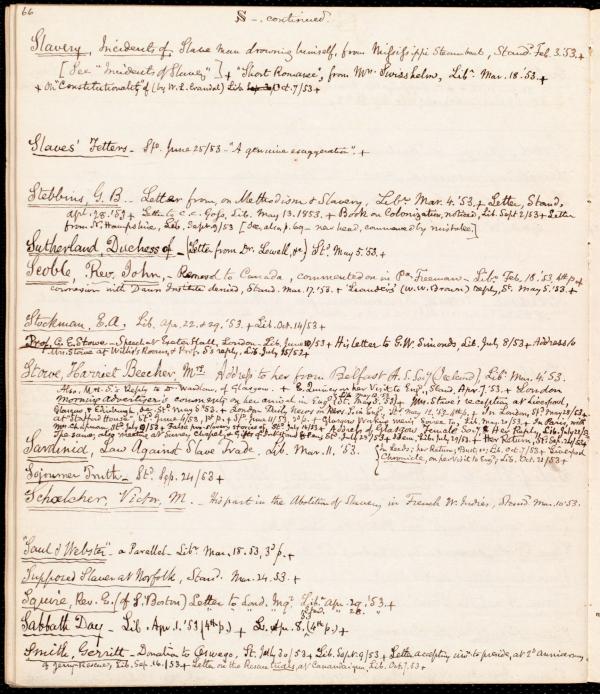 66
S -, continued.
Slavery, Incidents of, Slave man drowning himself, from Mississippi Steamboat, Stand. Feb. 3. '53. +
[See "Incidents of Slavery"] + "Short Romance", from Mrs. Swisshelm, Lib. Mar. 18. '53. +
+ On "Constitutionality" of (by W. L. Crandal) Lib. Oct. 7/53 +
Slaves' Fetters - St. June 25/53 - "A genuine exaggeration". +
Stebbins, G. B. - Letter from, on Methodism & Slavery, Lib. Mar. 4. '53. + Letter, Stand.
Apr. 28. '53 + Letter to C. C. Foss, Lib. May 13. 1853. + Book on Colonization, noticed, Lib. Sept 2/53 + Letter
from N. Hampshire, Lib. Sept 9/53 [See, also, p. 69 - new head, commenced by mistake.]
Sutherland, Duchess of - (Letter from Dr. Lowell, to) St. May 5. '53. +
Scoble, Rev. John, - Removal to Canada, commented on in Pa. Freeman - Lib. Feb. 18. '53, 4th p. +
connexion with Dawn Institute denied, Stand. Mar. 17. '53. + "Leander's" (W. W. Brown) reply, St. May 5. '53. +
Stockman, E. A. Lib. Apr. 22. & 29. '53. + Lib. Oct. 14/53 +
Prof. C. E. Stowe - Speech at Exeter Hall, London - Lib. June 10/53 + His letter to G. W. Simonds, Lib. July 8/53 + Address to
Mrs. Stowe at Willis's Rooms, & Prof. S's reply, Lib. July 15/52 +
Stowe, Harriet Beecher, Mrs. Address to her from Belfast A. S. Soc'y (Ireland) Lib. Mar. 4. '53.
Also, Mr. S's Reply to Dr. Wardlaw, of Glasgow. + E. Quincy on her Visit to Eng'd, Stand. Apr. 7. '53. + London
Morning Advertiser's comments on her arrival in Eng'd + Mrs. Stowe's reception at Liverpool,
Glasgow & Edinburgh, St. May 5. '53. + London Paul, In London, St. May 28/53 +
at Stafford House Glasgow Lib. May 20/53 + In Paris, with
Mrs. Chapman, St. July 9/53 + False pro-slavery stories of St. July 16/53 + Address of Female Soc. & Her Reply,
The same, also meeting at Surrey Chapel, St. July 23/53 + Idem, Lib. July 29/53 + Her Return, St. Sep. 24/53 +
In Leeds; her Return, Lib. Oct. 7/53 + Liverpool
Chronicle, on her Visit to Eng'd, Lib. Oct. 21/53 +
Sardinia, Law Against Slave Trade. Lib. Mar. 11. '53.
Sojourner Truth - St. Sep. 24/53 +
Schœlcher, Victor, M. - His part in the Abolition of Slavery in French W. Indies, Stand. Mar. 10. '53.
"Saul & Webster" - a Parallel - Lib. Mar. 18. 53, 3d p. +
Supposed Slaver at Norfolk, Stand. Mar. 24. 53. +
Squire, Rev. E. (of S. Boston) Letter to Lond. Inq. Lib. Apr. 29. '53. +
Stand. " 28. "
Sabbath Day - Lib. Apr. 1. '53 (4th p.) + L. Apr. 8, (4th p.) +
Smith, Gerritt - Donation to Oswego, St. July 30/53 + Lib. Sept. 9/53 + Letter accepting invit. to preside, at 2d Anniversary
of Jerry Rescue, Lib. Sep. 16/53 + Letter on the Rescue trials, at Canandaigua, Lib. Oct. 7. 53 +